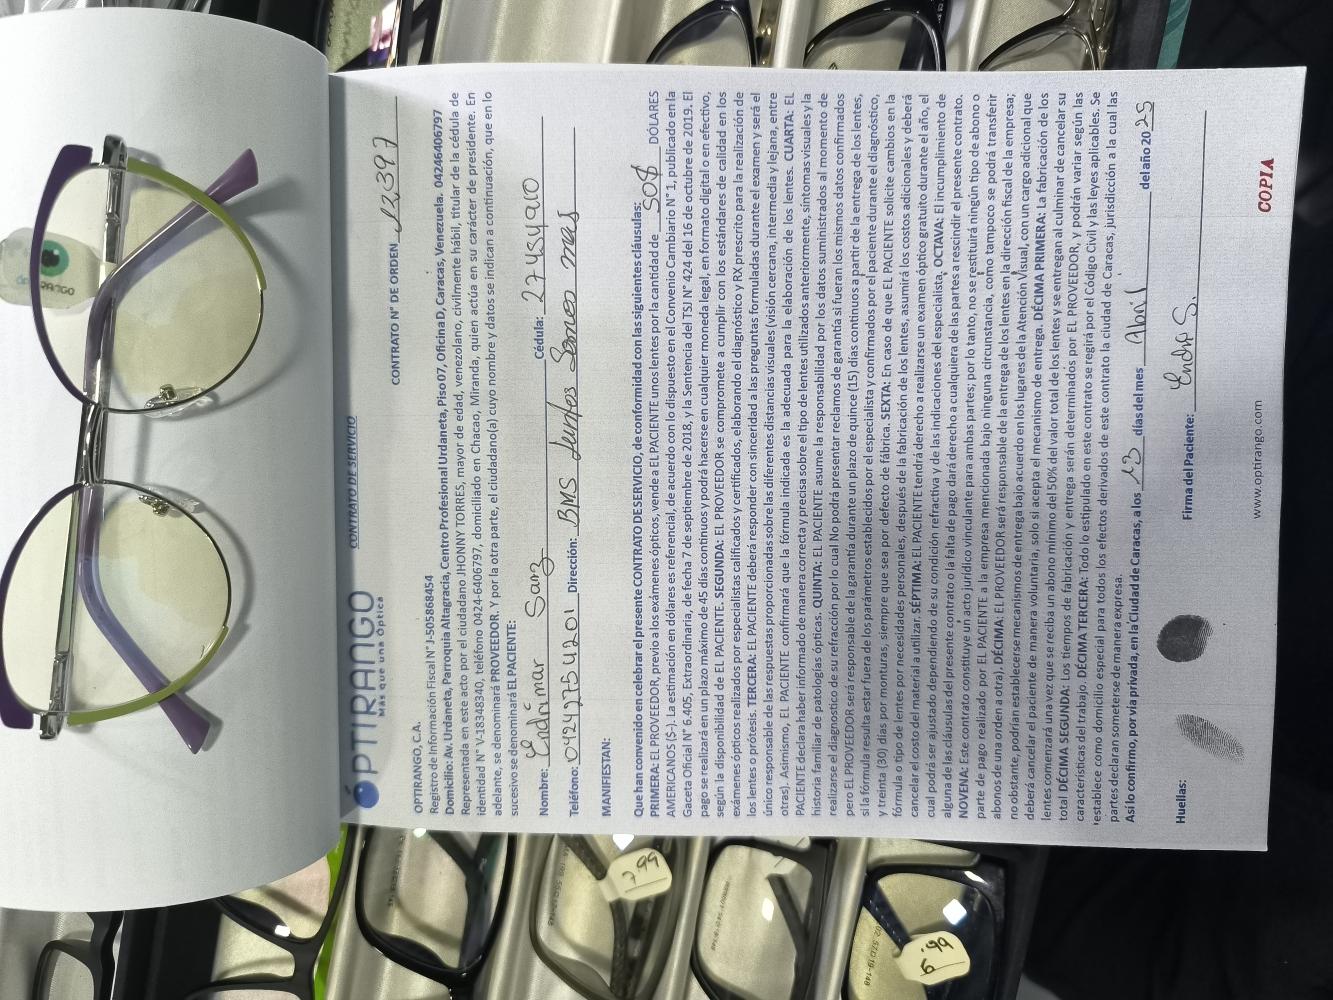 OPTIRANGO
Más que una Óptica
CONTRATO DE SERVICIO
CONTRATO N° DE ORDEN 12397
OPTIRANGO, C.A.
Registro de Información Fiscal N° J-505868454
Domicilio: Av. Urdaneta, Parroquia Altagracia, Centro Profesional Urdaneta, Piso 07, Oficina D, Caracas, Venezuela. 04246406797
Representada en este acto por el ciudadano JHONNY TORRES, mayor de edad, venezolano, civilmente hábil, titular de la cédula de
identidad N° V-18348340, teléfono 0424-6406797, domiciliado en Chacao, Miranda, quien actúa en su carácter de presidente. En
adelante, se denominará PROVEEDOR. Y por la otra parte, el ciudadano(a) cuyo nombre y datos se indican a continuación, que en lo
sucesivo se denominará EL PACIENTE:
Nombre: Endrimar Sanz Cédula: 27454910
Teléfono: 04242754201 Dirección: BMS Juntos Somos mas
MANIFIESTAN:
Que han convenido en celebrar el presente CONTRATO DE SERVICIO, de conformidad con las siguientes cláusulas:
PRIMERA: EL PROVEEDOR, previo a los exámenes ópticos, vende a EL PACIENTE unos lentes por la cantidad de 50$ DÓLARES
AMERICANOS ($-). La estimación en dólares es referencial, de acuerdo con lo dispuesto en el Convenio Cambiario N° 1, publicado en la
Gaceta Oficial N° 6.405, Extraordinaria, de fecha 7 de septiembre de 2018, y la Sentencia del TSJ N° 424 del 16 de octubre de 2019. El
pago se realizará en un plazo máximo de 45 días continuos y podrá hacerse en cualquier moneda legal, en formato digital o en efectivo,
según la disponibilidad de EL PACIENTE. SEGUNDA: EL PROVEEDOR se compromete a cumplir con los estándares de calidad en los
exámenes ópticos realizados por especialistas calificados y certificados, elaborando el diagnóstico y RX prescrito para la realización de
los lentes o prótesis. TERCERA: EL PACIENTE deberá responder con sinceridad a las preguntas formuladas durante el examen y será el
único responsable de las respuestas proporcionadas sobre las diferentes distancias visuales (visión cercana, intermedia y lejana, entre
otras). Asimismo, EL PACIENTE confirmará que la fórmula indicada es la adecuada para la elaboración de los lentes. CUARTA: EL
PACIENTE declara haber informado de manera correcta y precisa sobre el tipo de lentes utilizados anteriormente, síntomas visuales y la
historia familiar de patologías ópticas. QUINTA: EL PACIENTE asume la responsabilidad por los datos suministrados al momento de
realizarse el diagnostico de su refracción por lo cual No podrá presentar reclamos de garantía si fueran los mismos datos confirmados
pero EL PROVEEDOR será responsable de la garantía durante un plazo de quince (15) días continuos a partir de la entrega de los lentes,
si la fórmula resulta estar fuera de los parámetros establecidos por el especialista y confirmados por el paciente durante el diagnóstico,
y treinta (30) días por monturas, siempre que sea por defecto de fábrica. SEXTA: En caso de que EL PACIENTE solicite cambios en la
fórmula o tipo de lentes por necesidades personales, después de la fabricación de los lentes, asumirá los costos adicionales y deberá
cancelar el costo del material a utilizar. SÉPTIMA: EL PACIENTE tendrá derecho a realizarse un examen óptico gratuito durante el año, el
cual podrá ser ajustado dependiendo de su condición refractiva y de las indicaciones del especialista. OCTAVA: El incumplimiento de
alguna de las cláusulas del presente contrato o la falta de pago dará derecho a cualquiera de las partes a rescindir el presente contrato.
NOVENA: Este contrato constituye un acto jurídico vinculante para ambas partes; por lo tanto, no se restituirá ningún tipo de abono o
parte de pago realizado por EL PACIENTE a la empresa mencionada bajo ninguna circunstancia, como tampoco se podrá transferir
abonos de una orden a otra). DÉCIMA: EL PROVEEDOR será responsable de la entrega de los lentes en la dirección fiscal de la empresa;
no obstante, podrían establecerse mecanismos de entrega bajo acuerdo en los lugares de la Atención Visual, con un cargo adicional que
deberá cancelar el paciente de manera voluntaria, solo si acepta el mecanismo de entrega. DÉCIMA PRIMERA: La fabricación de los
lentes comenzará una vez que se reciba un abono mínimo del 50% del valor total de los lentes y se entregan al culminar de cancelar su
total DÉCIMA SEGUNDA: Los tiempos de fabricación y entrega serán determinados por EL PROVEEDOR, y podrán variar según las
características del trabajo. DÉCIMA TERCERA: Todo lo estipulado en este contrato se regirá por el Código Civil y las leyes aplicables. Se
establece como domicilio especial para todos los efectos derivados de este contrato la ciudad de Caracas, jurisdicción a la cual las
partes declaran someterse de manera expresa.
Así lo confirmo, por vía privada, en la Ciudad de Caracas, a los 13 días del mes Abril del año 2025
Huellas: Firma del Paciente: Endri S.
www.optirango.com
COPIA
7.99
9.99